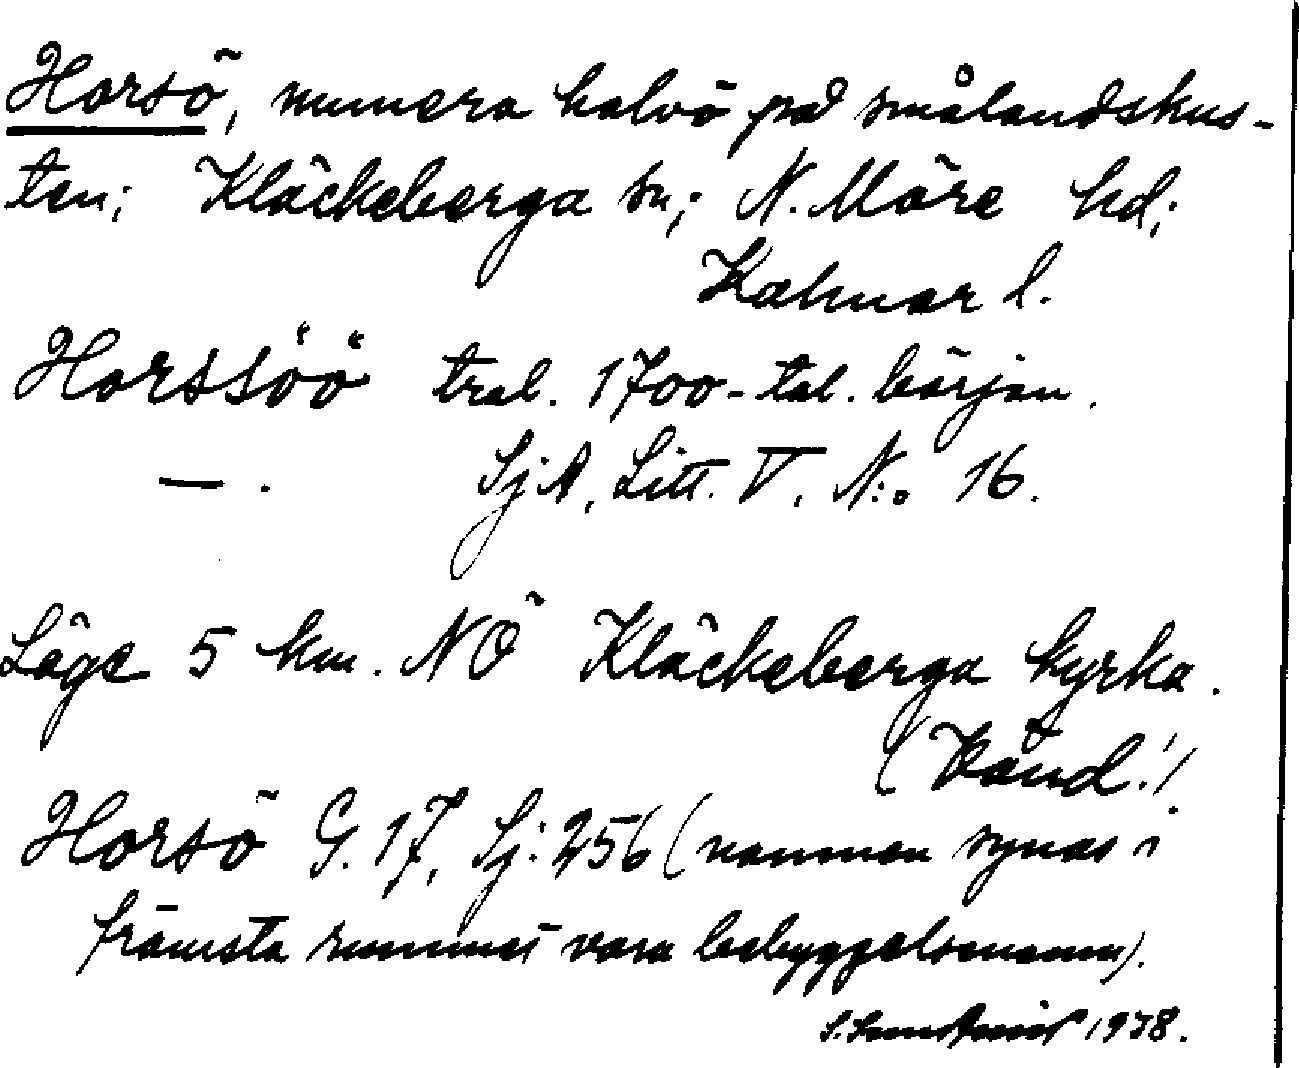 Horsö, numera halvö på smålandskus-
ten; Kläckeberga sn; N. Möre hd;
Kalmar l.
Horssöö tral. 1700-tal. början.
— . SjA, Litt. V, N:o 16.
Läge 5 km. NÖ Kläckeberga kyrka.
(Känd!)
Horsö G. 17, Sj: 256 (namnen synas i
främsta rummet vara bebyggelsenamn).
S. 1938.